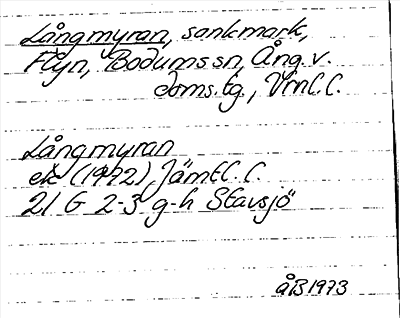 Långmyran, sankmark,
Flyn, Bodums sn, Ång. v.
doms. tg., Vrnl. l.
Långmyran
ek (1972) Jämtl. l.
21 G 2-3 g-h Stavsjö
åB 1973